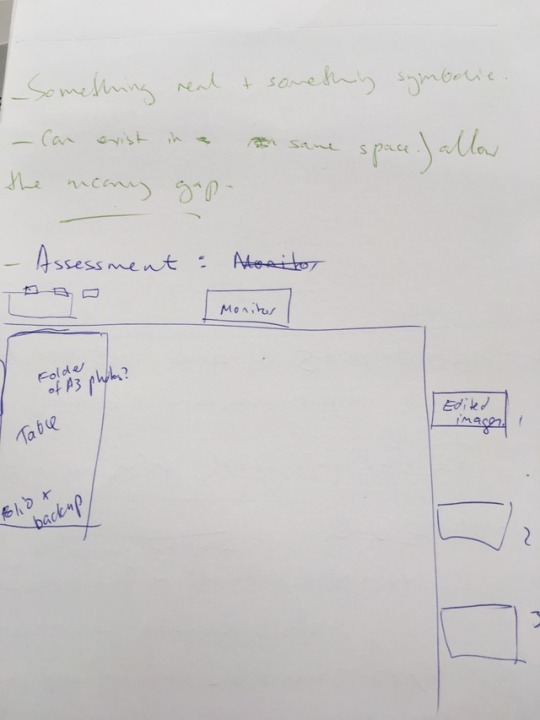 - Something real + something symbolic.
- Can exist in same space.) allow
the meaning gap.
- Assessment : Monitor
Monitor
Folder
of A3 photos?
Table
folio *
backup
Edited
images.
1
2
3